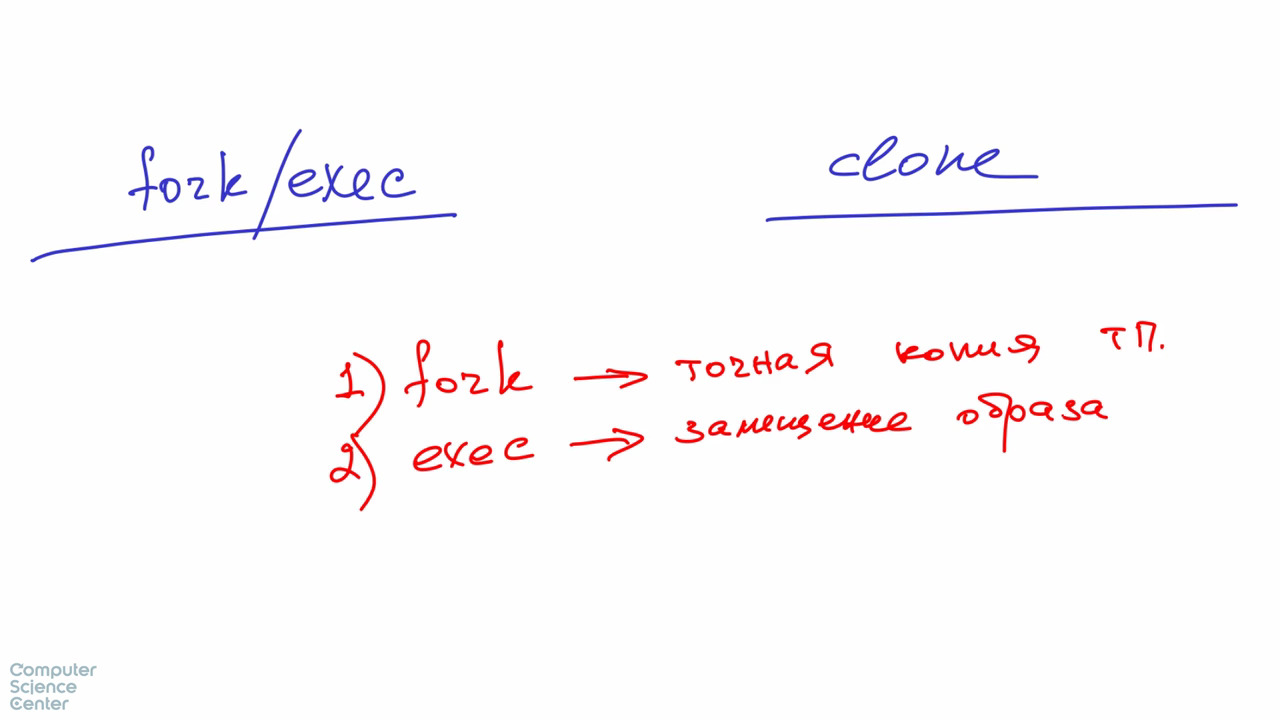 fork/exec
clone
1) fork → точная копия ТП.
2) exec → замещение образа
Computer
Science
Center